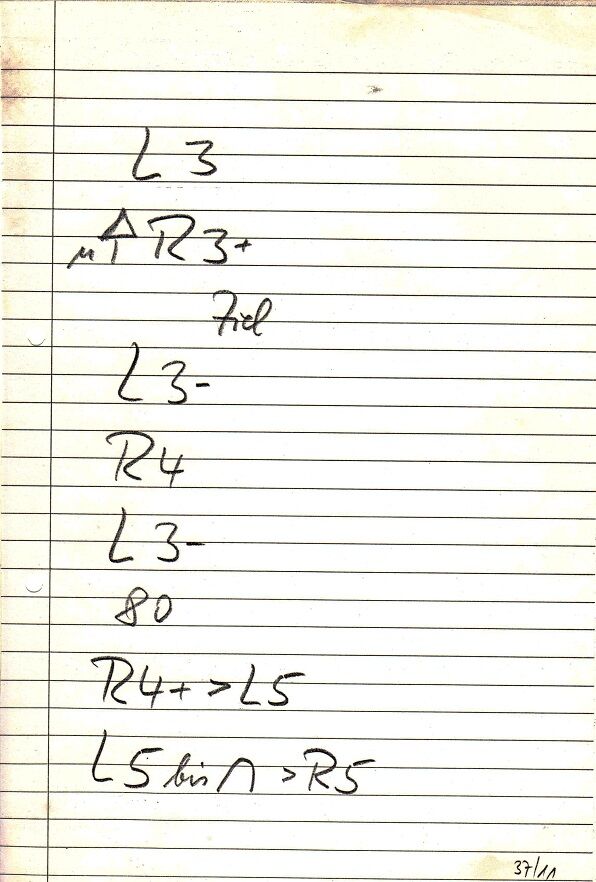 L 3
R 3+
Ziel
L 3-
R 4
L 3-
80
R 4+ > L 5
L 5 bis ∩ > R 5
37/11